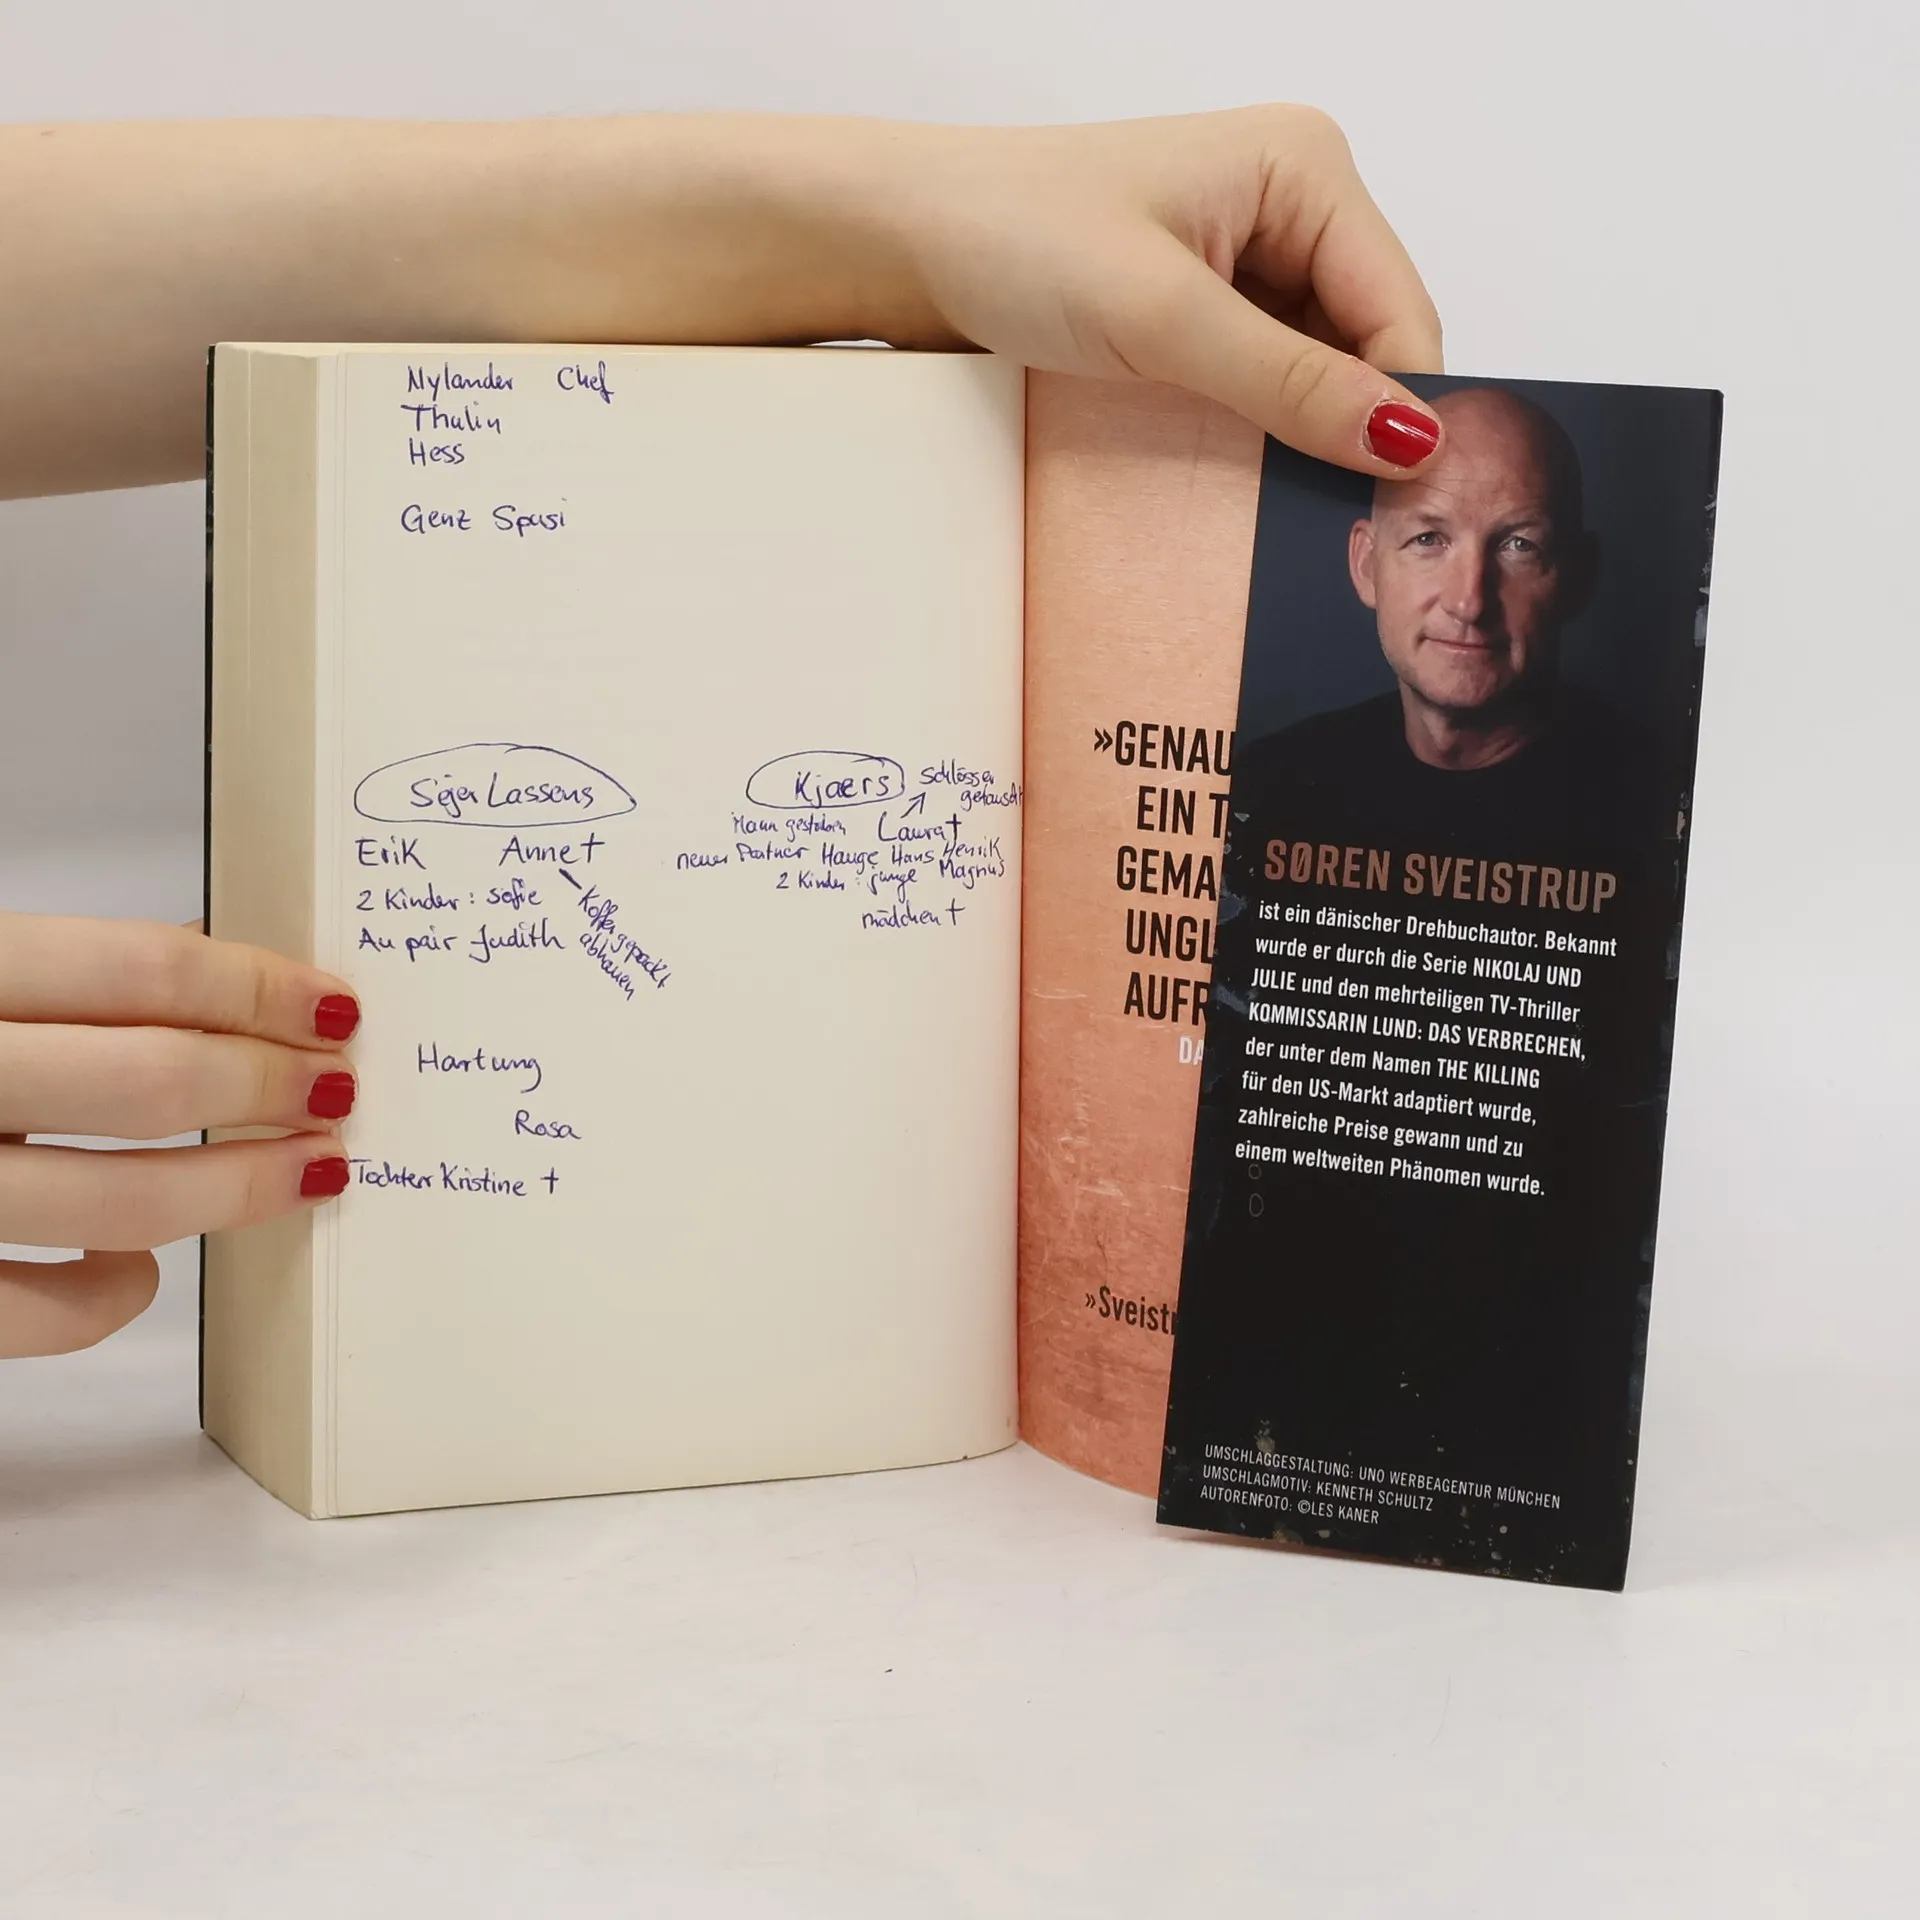 Nylander Chef
Thulin
Hess
Genz Spusi
Sejer Lassens
Erik Anne †
2 Kinder: Sofie
Au pair Judith
Koffer gepackt
abhauen
Kjaers
Schlösser
getauscht
Mann gestorben Laura †
neuer Partner Hauge Hans Henrik
2 Kinder: junge Magnus
mädchen †
Hartung
Rosa
Tochter Kristine †
»GENAU
EIN T
GEMA
UNGL
AUFR
DA
»Sveistr
SØREN SVEISTRUP
ist ein dänischer Drehbuchautor. Bekannt
wurde er durch die Serie NIKOLAJ UND
JULIE und den mehrteiligen TV-Thriller
KOMMISSARIN LUND: DAS VERBRECHEN,
der unter dem Namen THE KILLING
für den US-Markt adaptiert wurde,
zahlreiche Preise gewann und zu
einem weltweiten Phänomen wurde.
UMSCHLAGGESTALTUNG: UNO WERBEAGENTUR MÜNCHEN
UMSCHLAGMOTIV: KENNETH SCHULTZ
AUTORENFOTO: ©LES KANER